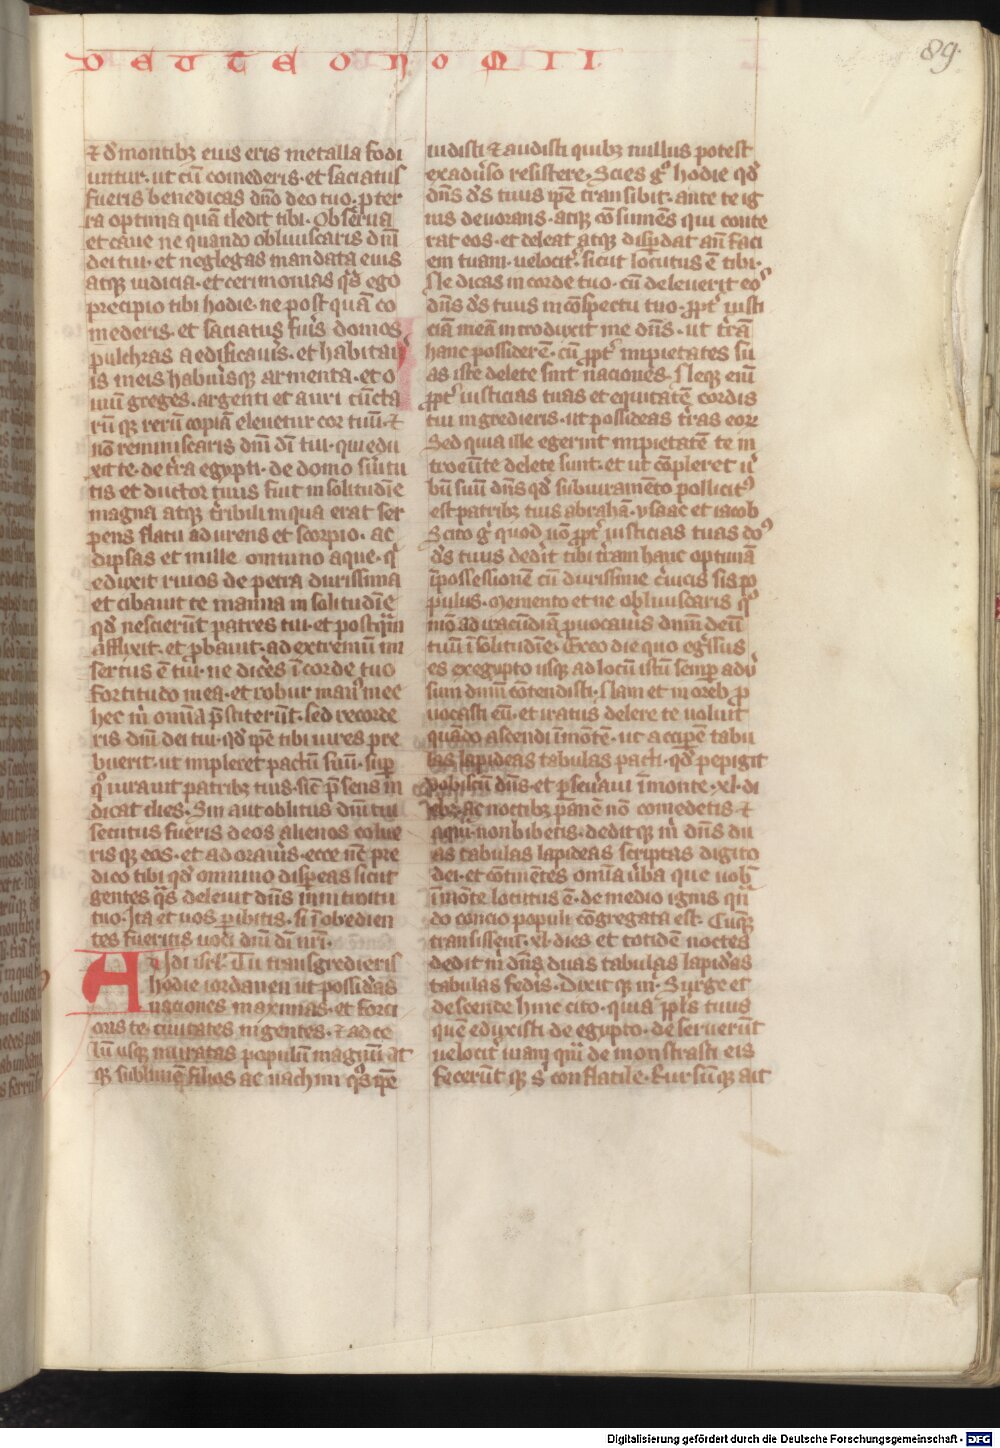 DEUTEONOMII
89
⁊ d̄ montibꝫ eius eris metalla fodi
untur. ut cū comederis. et saciatus
fueris benedicas dn̄o deo tuo. p̄ ter
ra optima quā dedit tibi. Obserua
et caue ne quando obliuiscaris dn̄i
dei tui. et neglegas mandata eius
atqꝫ iudicia. et cerimonias qͣs ego
precipio tibi hodie. ne post quā co
mederis. et saciatus fuīs domos
pulchras aedificauīs. et habitaū
is in eis habuīsqꝫ armenta. et o
uiū greges. argenti et auri cūcta
rū qꝫ rerū copiā eleuetur cor tuū. ⁊
nō reminiscaris dn̄i dī tui. qui edu
xit te. de tr̄a egypti. de domo sīuitu
tis et ductor tuus fuit in solitudīe
magna atqꝫ t̄ribili in qua erat ser
pens flatu adurens et scorpio. ac
dipsas et mille omnino aque. qͥ
eduxit riuos de petra durissima
et cibauit te manna in solitudīe
qd̄ nescierūt patres tui. et postqͣm
afflixit. et ꝓbauit. ad extremū mi
sertus ē tui. ne dicēs ī corde tuo
fortitudo mea. et robur manꝰ mee
hec m̄ om̄ia p̄stiterūt. sed recorde
ris dn̄i dei tui. qd̄ ip̄e tibi uires pre
buerit. ut impleret pactū suū. suꝑ
qͦ iurauit patribꝫ tuis. sic̄ p̄sens in
dicat dies. Sin aut oblitus dn̄i tui
secutus fueris deos alienos colue
ris qꝫ eos. et adorauīs. ecce nc̄ pre
dico tibi qd̄ omnino disꝑeas sicut
gentes qͣs deleuit dn̄s in introitu
tuo. Ita et uos ꝑibitis. si īobedien
tes fueritis uoci dn̄i dī nr̄i.
Audi isrl̄. Tu transgredieris
hodie iordanen ut possideas
naciones maximas. et forci
ores te. ciuitates ingentes. ⁊ ad ce
lū usqꝫ muratas populū magnū at
qꝫ sublimē filios ac nachim qͦs ip̄e
uidisti ⁊ audisti quibꝫ nullus potest
exaduīso resistere. Scies gͦ hodie qd̄
dn̄s ds̄ tuus ip̄e transibit. ante te ig
nis deuorans. atqꝫ cōsumēs qui conte
rat eos. et deleat atqꝫ disꝑdat an̄ faci
em tuam. uelocit̄. sicut locutus ē tibi.
Ne dicas in corde tuo. cū deleuerit eoꝰ
dn̄s ds̄ tuus in cōspectu tuo. ꝓpt̄ iusti
ciā meā introduxit me dn̄s. ut tr̄ā
hanc possiderē. cū ꝓpt̄ impietates su
as iste delete sint naciones. Neqꝫ eni̅
ꝓpt̄ iusticias tuas et equitatē cordis
tui ingredieris. ut possideas tr̄as eoꝝ
Sed quia ille egerint impietatē te in
troeūte delete sunt. et ut cōpleret ū
bū suū dn̄s qd̄ subiuramēto pollicitꝰ
est patribꝫ tuis abrahā. ysaac et iacob
Scito gͦ quod nō ꝓpt̄ iusticias tuas do
ds̄ tuus dedit̄ tibi tr̄am hanc optimā
ī possessionē cū durissime c̄uicis sis po
pulus. Memento et ne obliuiscaris qͦ
mō ad iracūdiā ꝓuocauīs dn̄m deū
tuū ī solitudīe. Exeo die quo egr̄sus
es ex egypto usqꝫ ad locū istū semꝑ adū
sum dn̄m cōtendisti. Nam et in oreb ꝓ
uocasti eū. et iratus delere te uoluit
quādo ascendi īmōtē. ut acciꝑē tabu
las lapideas tabulas pacti. qd̄ pepigit
uobiscū dn̄s. et ꝑseuāui īmonte. xl. di
ebꝫ ac noctibꝫ panē nō comedetis ⁊
aquā non bibetis. dedit qꝫ m̄ dn̄s du
as tabulas lapideas scriptas digito
dei. et cōtinētes om̄ia ūba que uob̄
ī mōte locutus ē. de medio ignis qn̄
do concio populi cōgregata est. Cumqꝫ
transissent. xl. dies et totidē noctes
dedit m̄ dn̄s duas tabulas lapideas
tabulas fedīs. Dixit qꝫ m̄. Surge et
descende hinc cito. quia ppl̄s tuus
quē eduxisti de egypto. deseruerūt
uelocit̄ uiam quā demonstrasti eis
fecerūt qꝫ s̄ conflatile. Rursūqꝫ ait
Digitalisierung gefördert durch die Deutsche Forschungsgemeinschaft - DFG